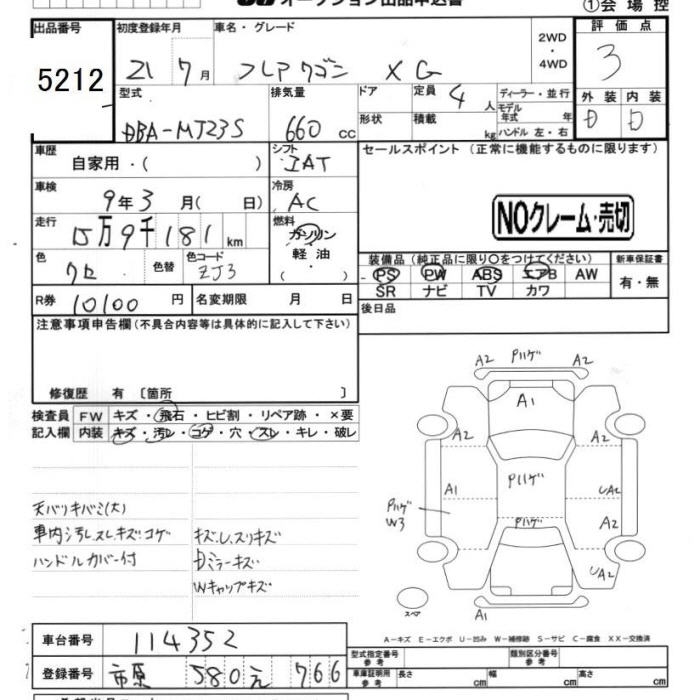 オークション出品申込書 ①会場控
出品番号 初度登録年月 車名・グレード 評価点
5212 21 7月 フレアワゴン XG 2WD・4WD 3
型式 排気量 ドア 定員 4人 ディーラー・並行 外装 内装
モデル年式 年
DBA-MJ23S 660 cc 形状 積載 kg ハンドル 左・右 D D
車歴 自家用・( ) シフト IAT セールスポイント (正常に機能するものに限ります)
車検 9年3月( 日) 冷房 AC
NOクレーム・売切
走行 15万9千181km 燃料 ガソリン
軽油
・( )
色 クロ 色替 色コード ZJ3 装備品(純正品に限り○をつけてください) 新車保証書
PS PW ABS エアB AW 有・無
SR ナビ TV カワ
R券 10100円 名変期限 月 日 後日品
注意事項申告欄(不具合内容等は具体的に記入して下さい)
修復歴 有 〔箇所 〕
検査員 FW キズ・飛石・ヒビ割・リペア跡・×要
記入欄 内装 キズ・汚レ・コゲ・穴・スレ・キレ・破レ
天バリキバミ(大)
車内汚レスレキズコゲ
ハンドルカバー付
キズ.U.スリキズ
Dミラーキズ
Wキャップキズ
A2 Pハゲ A2
A1
A2 A2
A1 Pハゲ UA2
Pハゲ
W3 Pハゲ A2
UA2
スペア A1
A-キズ E-エクボ U-凹み W-補修跡 S-サビ C-腐食 XX-交換済
車台番号 114352 型式指定番号 参考 類別区分番号 参考
登録番号 市原 580 え 766 車庫証明用 参考 長さ cm 幅 cm 高さ cm